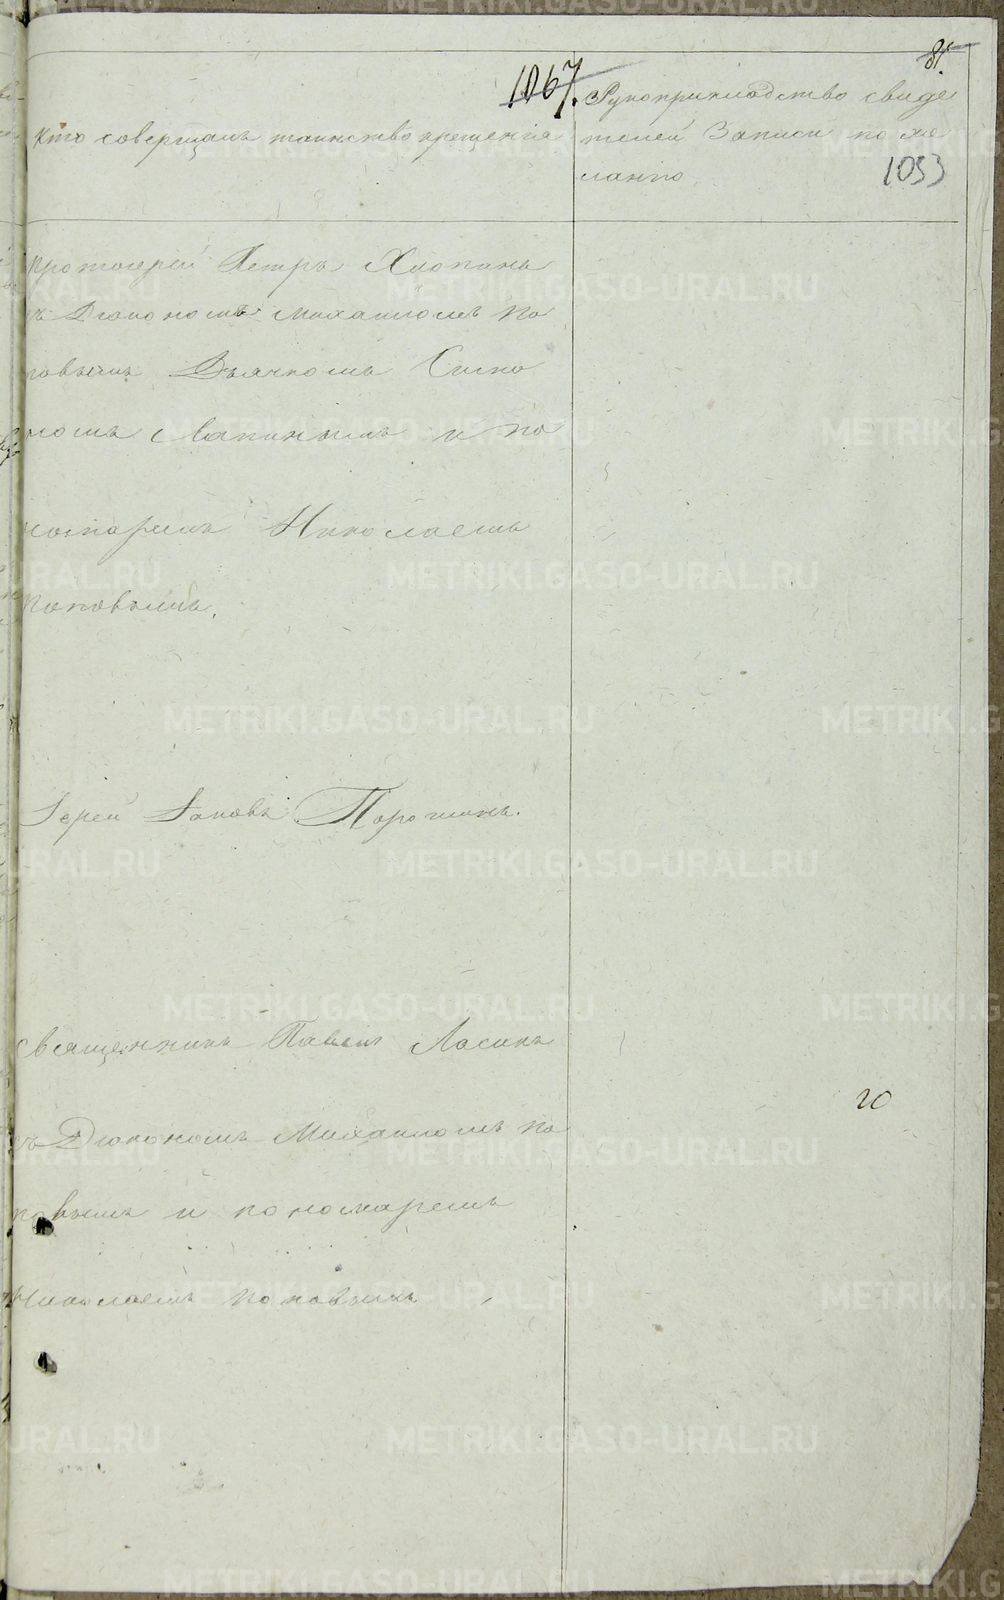 81.
1067.
Кто совершалъ таинство крещенія
Рукоприкладство свиде
телей Записи по же
ланію
1053
Протоіерей Петръ Хлопинъ
съ Діакономъ Михаиломъ По
повымъ Дьячкомъ Симо
номъ и по
номаремъ Николаемъ
Поповымъ.
Іерей Іаковъ Порошинъ.
Священникъ Павелъ Ласинъ
20
съ Діакономъ Михаиломъ По
повымъ и пономаремъ
Николаемъ Поповымъ
METRIKI.GASO-URAL.RU